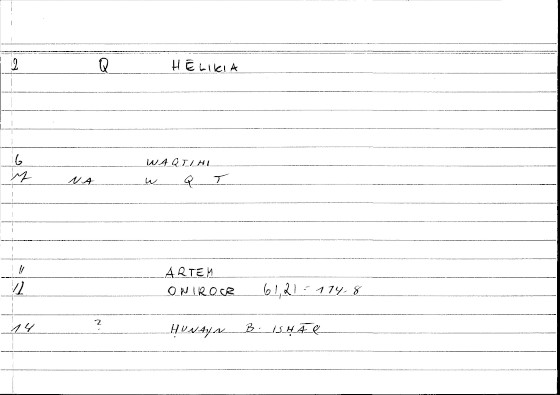 2 Q HĒLIKIA
6 WAQTIHI
NA W Q T
11 ARTEM
12 ONIROCR 61,21 = 174.8
14 ? ḤUNAYN B. ISḤĀQ